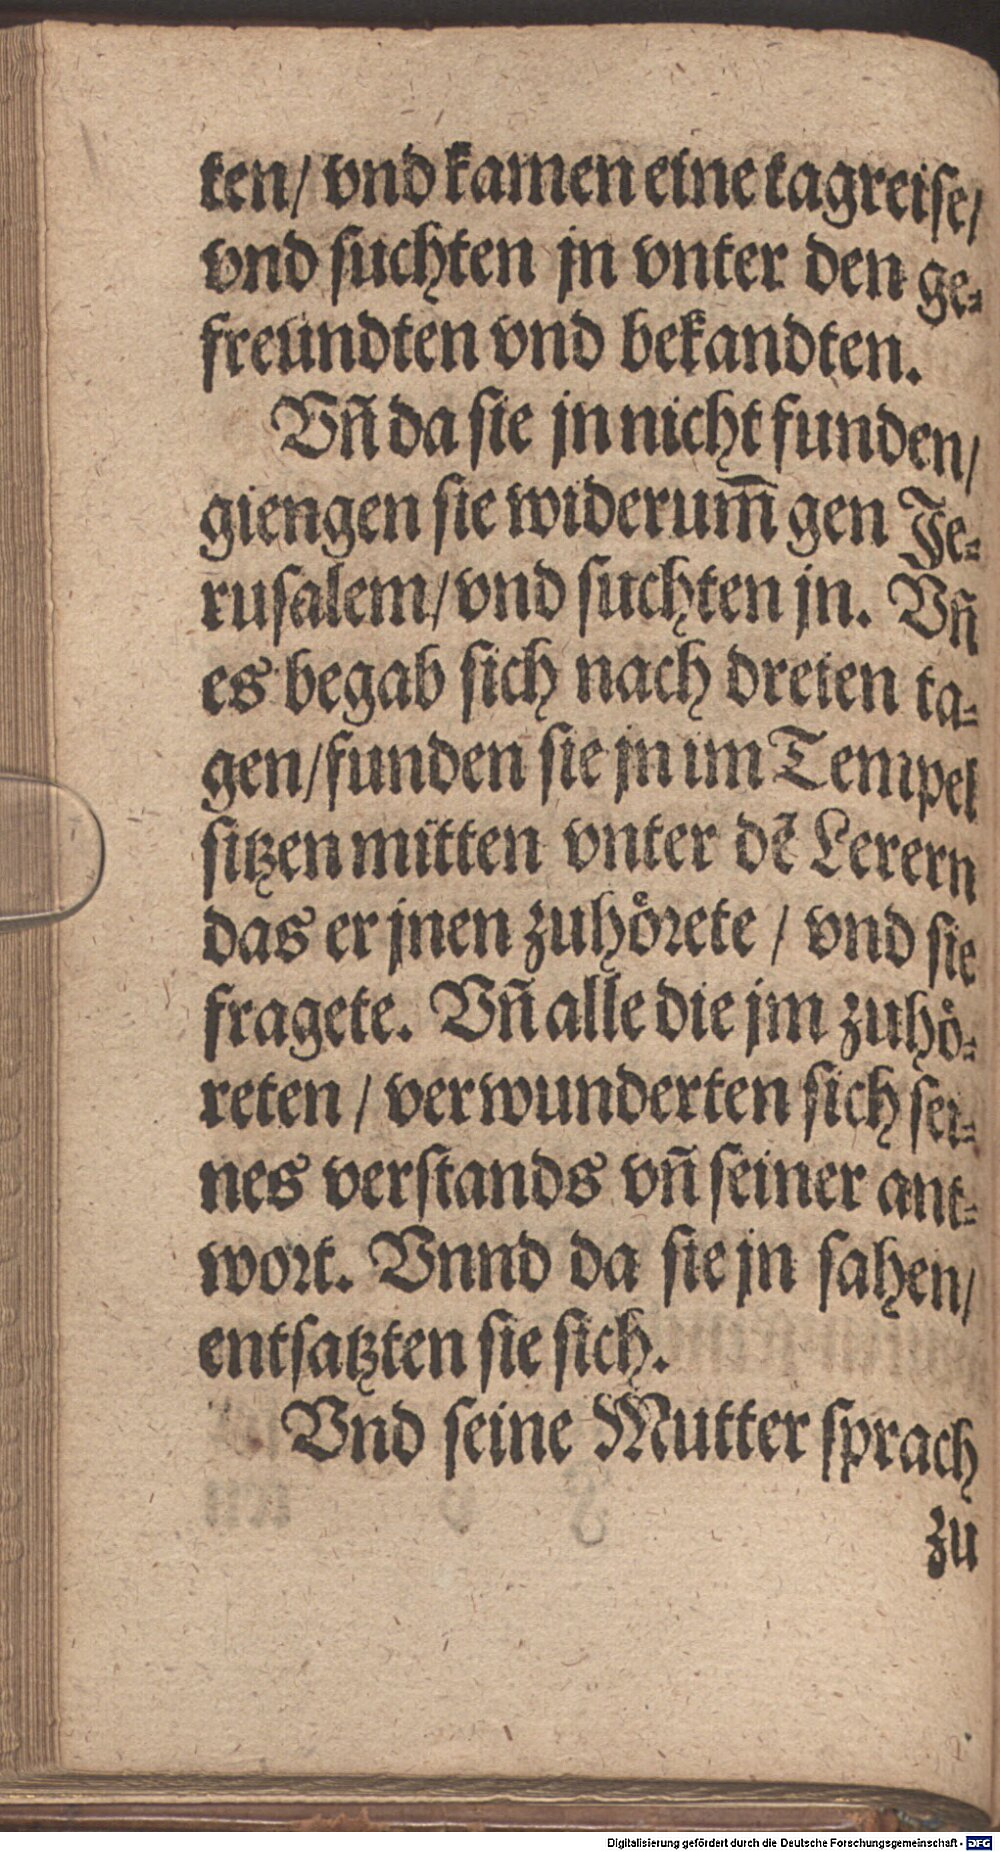 ten/ vnd kamen eine tagreise/
vnd suchten jn vnter den ge⸗
freundten vnd bekandten.
Vñ da sie jn nicht funden/
giengen sie widerum̄ gen Je⸗
rusalem/ vnd suchten jn. Vñ
es begab sich nach dreien ta⸗
gen/ funden sie jn im Tempel
sitzen mitten vnter dẽ Lerern
das er jnen zuhoͤrete / vnd sie
fragete. Vñ alle die jm zuhoͤ⸗
reten / verwunderten sich sei⸗
nes verstands vñ seiner ant⸗
wort. Vnnd da sie jn sahen/
entsatzten sie sich.
Vnd seine Mutter sprach
zu
Digitalisierung gefördert durch die Deutsche Forschungsgemeinschaft - DFG